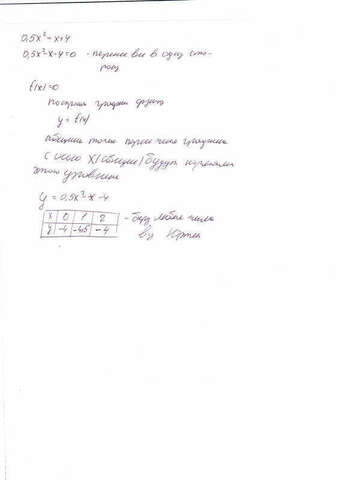 0,5x² = x+4
0,5x²-x-4=0 - перенес все в одну сто-
рону
f(x)=0
построим график функ
y = f(x)
абсциссы точек пересечения графика
с осью X (абсцисс) будут корнями
этого уравнения
y = 0,5x²-x-4
x 0 1 2 - беру любые числа
y -4 -4,5 -4